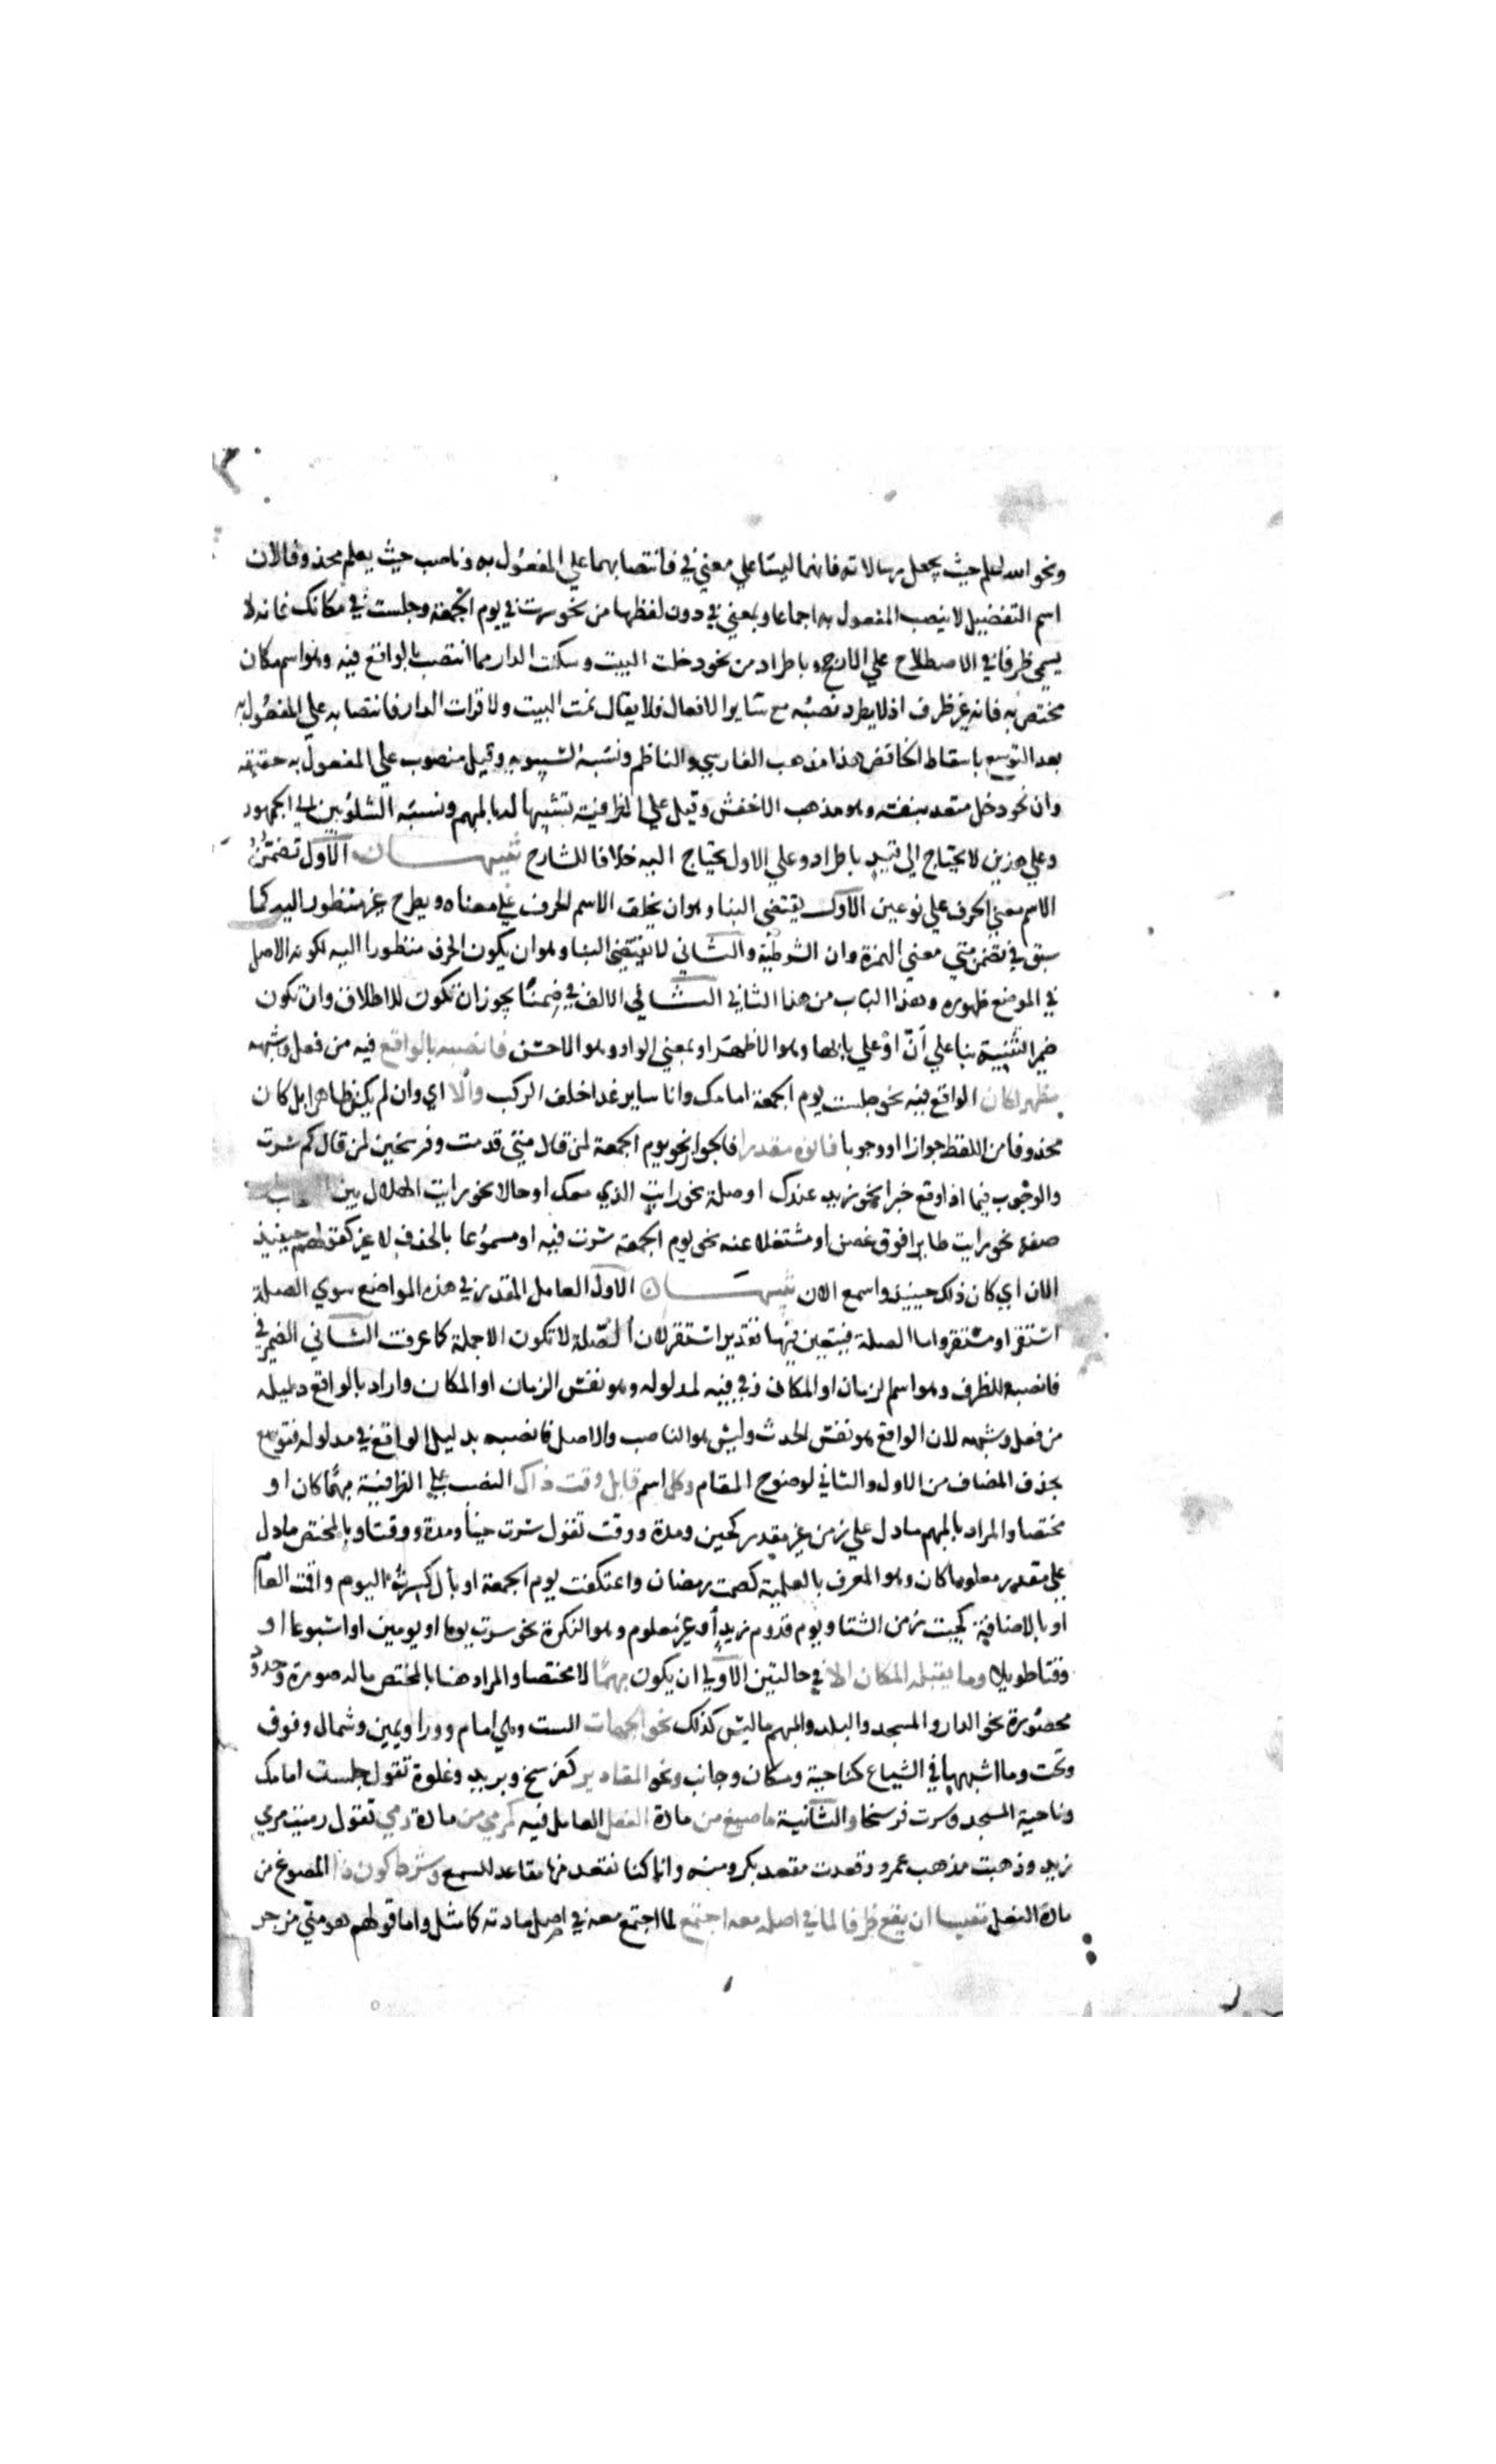 ونحو الله اعلم حيث يجعل رسالاته فانهما ليستا علي معني في فانتصابهما علي المفعول به وناصب حيث يعلم محذوفا لان
اسم التفضيل لا ينصب المفعول به اجماعا وبمعني في دون لفظها من نحو سرت في يوم الجمعة وجلست في مكانك فانه لا
يسمي ظرفا في الاصطلاح علي الارجح وباطراد من نحو دخلت البيت وسكنت الدار مما انتصب بالواقع فيه وهو اسم مكان
مختص به فانه غير ظرف اذ لا يطرد نصبه مع سائر الافعال فلا يقال نمت البيت ولا قرات الدار فانتصابه علي المفعول به
بعد التوسع باسقاط الخافض هذا مذهب الفارسي والناظم ونسبة لسيبويه وقيل منصوب علي المفعول به حقيقة
وان نحو دخل متعد بنفسه وهو مذهب الاخفش وقيل علي الظرفية تشبيها له بالمبهم ونسبه الشلوبين الي الجمهور
وعلي هذين لا يحتاج الي قيد باطراد وعلي الاول يحتاج اليه خلافا للشارح تنبيهان الاول تضمن
الاسم معني الحرف علي نوعين الاول يقتضي البنا وهو ان يخلف الاسم الحرف علي معناه ويطرح غير منظور اليه كما
سبق في تضمن متي معني الهمزة وان الشرطية والثاني لا يقتضي البنا وهو ان يكون الحرف منظورا اليه لكونه الاصل
في الموضع ظهوره وهذا الباب من هذا الثاني الثاني الالف في ضمنا يجوز ان تكون للاطلاق وان تكون
ضمير التثنية بنا علي ان او علي بابها وهو الاظهر او بمعني الواو وهو الاحسن فانصبه بالواقع فيه من فعل وشبهه
مظهرا كان الواقع فيه نحو جلست يوم الجمعة امامك وانا ساير غدا خلف الركب والا اي وان لم يكن ظاهرا بل كان
محذوفا من اللفظ جوازا او وجوبا فانوه مقدرا فالجواز نحو يوم الجمعة لمن قال متي قدمت وفرسخين لمن قال كم سرت
والوجوب فيما اذا وقع خبرا نحو زيد عندك او صلة نحو رايت الذي معك او حالا نحو رايت الهلال بين
صفة نحو رايت طايرا فوق غصن او مشتغلا عنه نحو يوم الجمعة سرت فيه او مسموعا بالحذف لا غير كقولهم حينيذ
الان اي كان ذلك حينيذ واسمع الان تنبيهان الاول العامل المقدر في هذه المواضع سوي الصلة
استقر او مستقر واما الصلة فيتعين فيها تقدير استقر لان الصلة لا تكون الا جملة كما عرفت الثاني الضمير في
فانصبه للظرف وهو اسم الزمان او المكان وفي فيه لمدلوله وهو نفس الزمان او المكان واراد بالواقع دليله
من فعل وشبهه لان الواقع هو نفس الحدث وليس هو الناصب والاصل فانصبه بدليل الواقع في مدلوله فتوسع
بحذف المضاف من الاول والثاني لوضوح المقام وكل اسم قابل وقت ذاك النصب علي الظرفية مبهما كان او
مختصا والمراد بالمبهم ما دل علي زمن غير مقدر كحين ومدة ووقت تقول سرت حينا ومدة ووقتا وبالمختص ما دل
علي مقدر معلوما كان وهو المعرف بالعلمية كصمت رمضان واعتكفت يوم الجمعة او بأل كسرت اليوم واقمت العام
او بالاضافة كجيت زمن الشتا ويوم قدوم زيد او غير معلوم وهو النكرة نحو سرت يوما او يومين او اسبوعا او
وقتا طويلا وما يقبله المكان الا في حالتين الاولي ان يكون مبهما لا مختصا والمراد هنا بالمختص ما له صورة وحدود
محصورة نحو الدار والمسجد والبلد والمبهم ما ليس كذلك نحو الجهات الست وهي امام وورا ويمين وشمال وفوق
وتحت وما اشبهها في الشياع كناحية ومكان وجانب ونحو المقادير كفرسخ وبريد وغلوة تقول جلست امامك
وناحية المسجد وسرت فرسخا والثانية ما صيغ من مادة الفعل العامل فيه كمرمي من مادة رمي تقول رميت مرمي
زيد وذهبت مذهب عمرو وقعدت مقعد بكر ومنه وانا كنا نقعد منها مقاعد للسمع وشرط كون ذا المصوغ من
مادة الفعل مقيسا ان يقع ظرفا لما في اصله معه اجتمع لما اجتمع معه في اصل مادته كما مثل واما قولهم هو مني مزجر